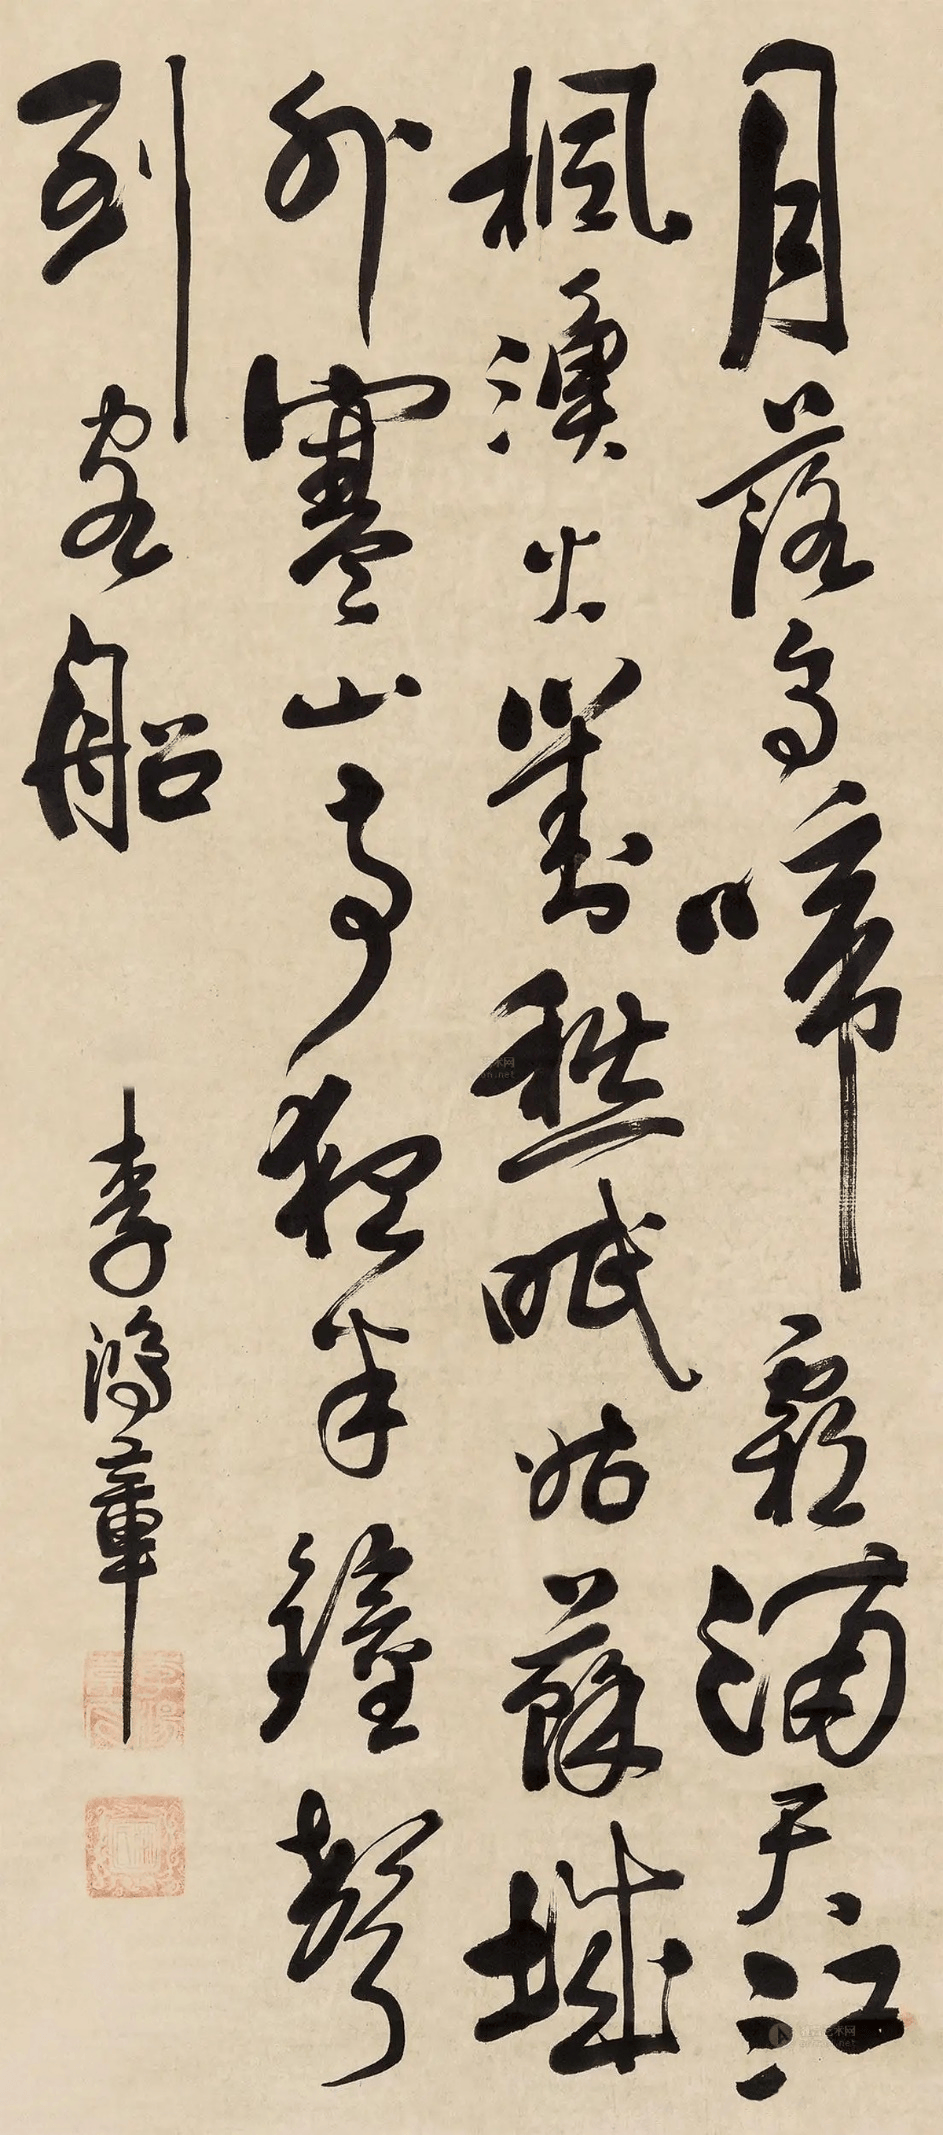 月落烏啼霜滿天江
楓漁火對愁眠姑蘇城
外寒山寺夜半鐘聲
到客船
李鴻章